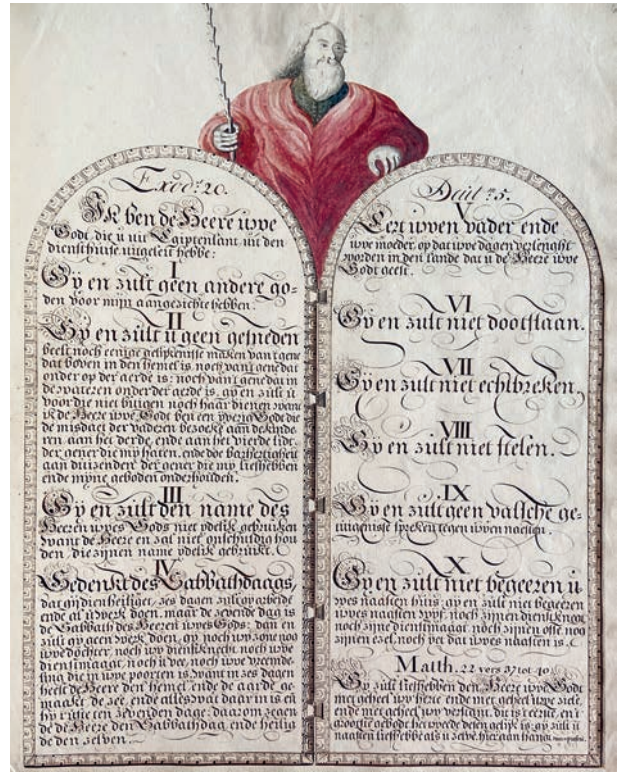 Exod. 20.
Ik ben de Heere uwe
Godt, die u uit Egiptenlant uit den
diensthuise uitgeleit hebbe:
I
Gy en zult geen andere go-
den voor mijn aangezichte hebben.
II
Gy en zult u geen gesneden
beelt noch eenige gelijkenisse maken van 't gene
dat boven in den hemel is, noch van 't gene dat
onder op der aerde is: noch van 't gene dat in
de wateren onder der aerde is. gy en zult u
voor die niet buigen noch haar dienen want
ik de Heere uwe Godt ben een yverig Godt die
de misdaet der vaderen bezoeke aan de kinde
ren aan het derde, ende aan het vierde lidt
der gener die my haten. ende doe barhertigheit
aan duizenden der gener die my liefhebben
ende myne geboden onderhouden.
III
Gy en zult den name des
Heeren uwes Gods niet ydelik gebruiken
want de Heere en zal niet onschuldig hou
den, die zijnen name ydelik gebruikt.
IV
Gedenkt des Sabbathdaags,
dat gy dien heiliget, zes dagen zult gy arbeide
ende al u werk doen. maar de zevende dag is
de Sabbath des Heeren uwes Gods: dan en
zult gy geen werk doen, gy noch uw zone noc
uwe dochter, noch uw dienstknecht, noch uwe
dienstmaagt, noch u vee, noch uwe vreemde-
ling die in uwe poorten is: want in zes dagen
heeft de Heere den hemel, ende de aarde ge-
maakt, de zee, ende alles wat daar in is en
hy ruste ten zevenden dage: daarom zegen
de de Heere den Sabbathdag, ende heilig
de den zelven.
Deut. 5.
V
Eert uwen vader ende
uwe moeder, op dat uwe dagen verlenght
worden in den lande dat u de Heere uwe
Godt geeft.
VI
Gy en zult niet dootslaan.
VII
Gy en zult niet echtbreken,
VIII
Gy en zult niet stelen.
IX
Gy en zult geen valsche ge-
tuigenisse spreken tegen uwen naesten.
X
Gy en zult niet begeeren u-
wes naasten huis: gy en zult niet begeeren
uwes naasten wyf. noch zijnen dienstknegt
noch zijne dienstmaagt, noch zijnen osse noc
zijnen ezel, noch yet dat uwes naasten is.
Matth. 22 vers 37 tot 40
Gy zult liefhebben den Heere uwe Godt
met geheel uw herte ende met geheel uwe ziele,
ende met geheel uw verstant. dit is eerste en 't
grootste gebodt het tweede desen gelijk is: gy zult u
naasten liefhebbe als u zelve. hier aan hangt